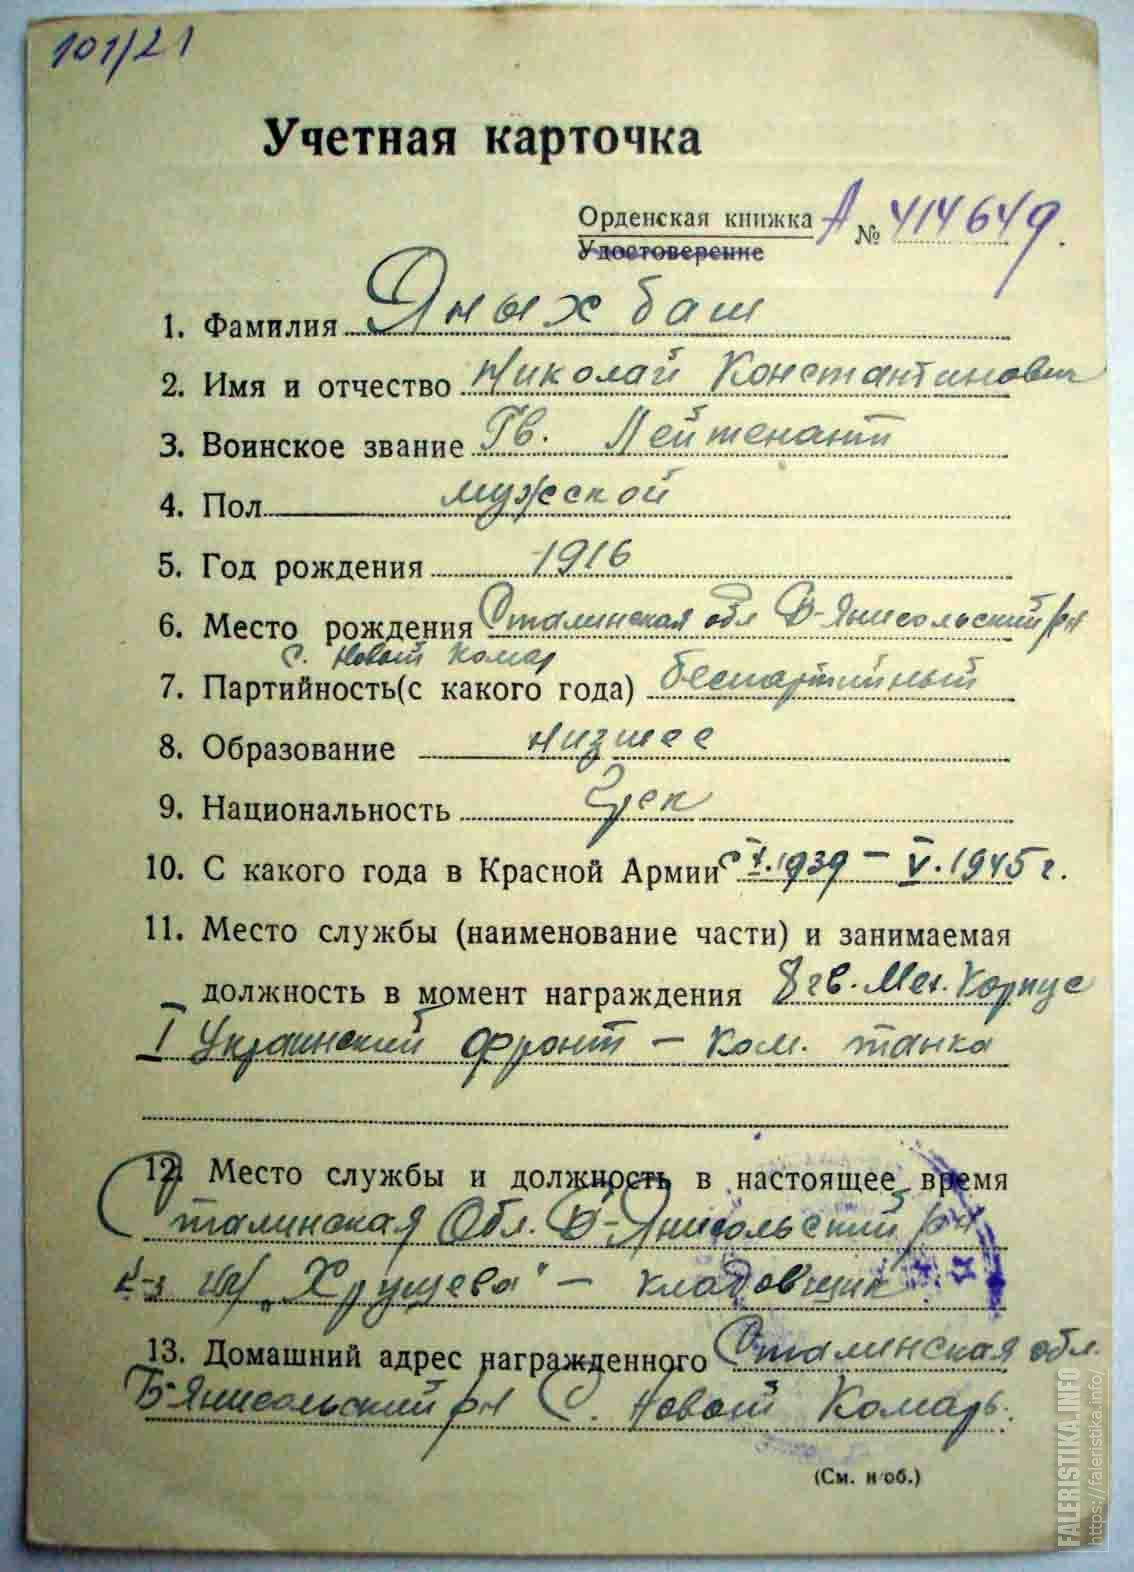 101/21
Учетная карточка
Орденская книжка А № 414649
Удостоверение
1. Фамилия Яныхбаш
2. Имя и отчество Николай Константинович
3. Воинское звание Гв. Лейтенант
4. Пол мужской
5. Год рождения 1916
6. Место рождения Сталинская обл В-Янисольский р-н
с. Новый Комар
7. Партийность (с какого года) беспартийный
8. Образование низшее
9. Национальность Грек
10. С какого года в Красной Армии С 1939 – V. 1945 г.
11. Место службы (наименование части) и занимаемая
должность в момент награждения 8 гв. Мех. Корпус
I Украинский фронт – ком. танка
12. Место службы и должность в настоящее время
Сталинская Обл. В-Янисольский р-н
к-з им „Хрущева" – кладовщик
13. Домашний адрес награжденного Сталинская обл.
В-Янисольский р-н С. Новый Комарь.
(См. н об.)
FALERISTIKA.INFO
https://faleristika.info/